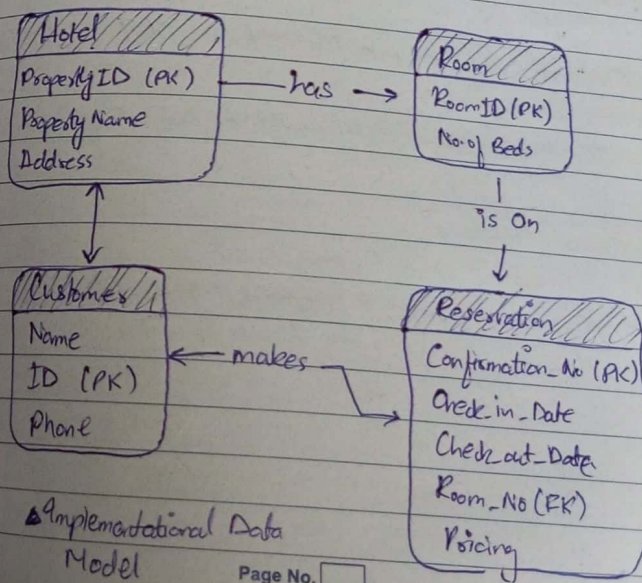 Hotel
PropertyID (PK)
Property Name
Address
has
Room
RoomID (PK)
No. of Beds
is On
Customer
Name
ID (PK)
Phone
makes
Reservation
Confirmation_No (PK)
Check_in_Date
Check_out_Date
Room_No (FK)
Pricing
Implementational Data
Model
Page No.